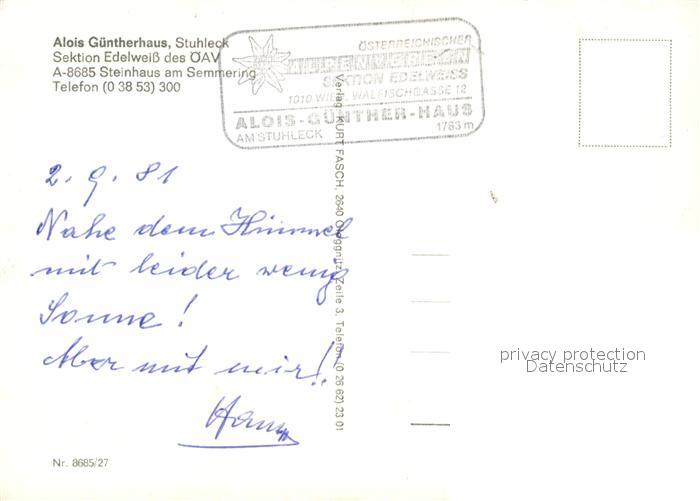 Alois Güntherhaus, Stuhleck
Sektion Edelweiß des ÖAV
A-8685 Steinhaus am Semmering
Telefon (0 38 53) 300
ÖSTERREICHISCHER
ALPENVEREIN
SEKTION EDELWEISS
1010 WIEN, WALFISCHGASSE 12
ALOIS-GÜNTHER-HAUS
AM STUHLECK 1783 m
Verlag KURT FASCH, 2640 Gloggnitz, Zeile 3, Telefon (0 26 62) 23 01
2. 9. 81
Nahe dem Himmel
mit leider wenig
Sonne!
Aber mit mir!!
privacy protection
Datenschutz
Nr. 8685/27